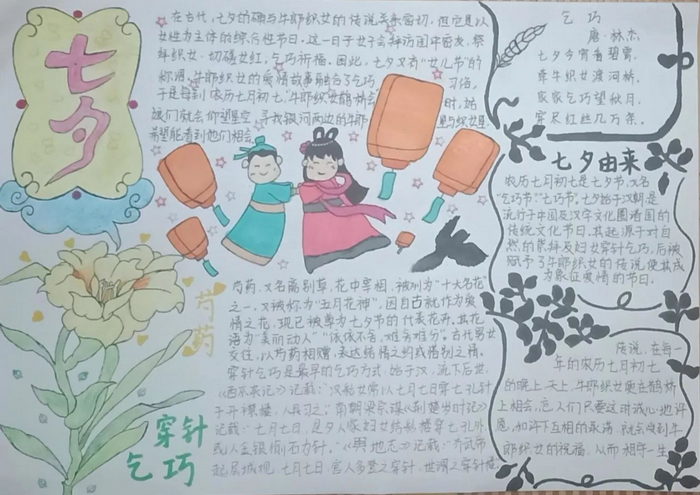 七夕
在古代,七夕的确与牛郎织女的传说关系密切,但它是以
女性为主体的综合性节日。这一日子女子会拜访闺中密友、祭
拜织女、切磋女红、乞巧祈福。因此,七夕又有“女儿节”的
称谓。牛郎织女的爱情故事融合了乞巧习俗,
于是每到农历七月初七“牛郎织女鹊桥会”时,姑
娘们就会仰望星空,寻找银河两边的牛郎星与织女星
希望能看到他们相会
乞巧
唐·林杰
七夕今宵看碧霄,
牵牛织女渡河桥。
家家乞巧望秋月,
穿尽红丝几万条。
七夕由来
农历七月初七是七夕节,又名
“乞巧节”“七巧节”。七夕始于汉朝是
流行于中国及汉字文化圈诸国的
传统文化节日,其起源于对自
然的崇拜及妇女穿针乞巧,后被
赋予了牛郎织女的传说使其成
为象征爱情的节日。
芍药
芍药,又名离别草,花中宰相,被列为“十大名花”
之一,又被称为“五月花神”,因自古就作为爱
情之花,现已被尊为七夕节的代表花卉。其花
语为“美丽动人”“依依不舍,难舍难分”。古代男女
交往,以芍药相赠,表达结情之约或惜别之情。
穿针乞巧
穿针乞巧是最早的乞巧方式,始于汉,流下后世。
《西京杂记》记载:“汉彩女常以七月七日穿七孔针
于开襟楼,人具习之。”南朝梁宗谋《荆楚岁时记》
记载:“七月七日,是夕人家妇女结彩楼穿七孔外
或以金银愉石为针。”《舆地志》记载:“齐武帝
起层城观,七月七日,宫人多登之穿针,世谓之穿针楼
传说,在每一
年的农历七月初七
的晚上,天上牛郎织女要在鹊桥
上相会,忘人们只要这时诚心地许
愿,如许下互相的承诺,就会收到牛
郎织女的祝福,从而相守一生